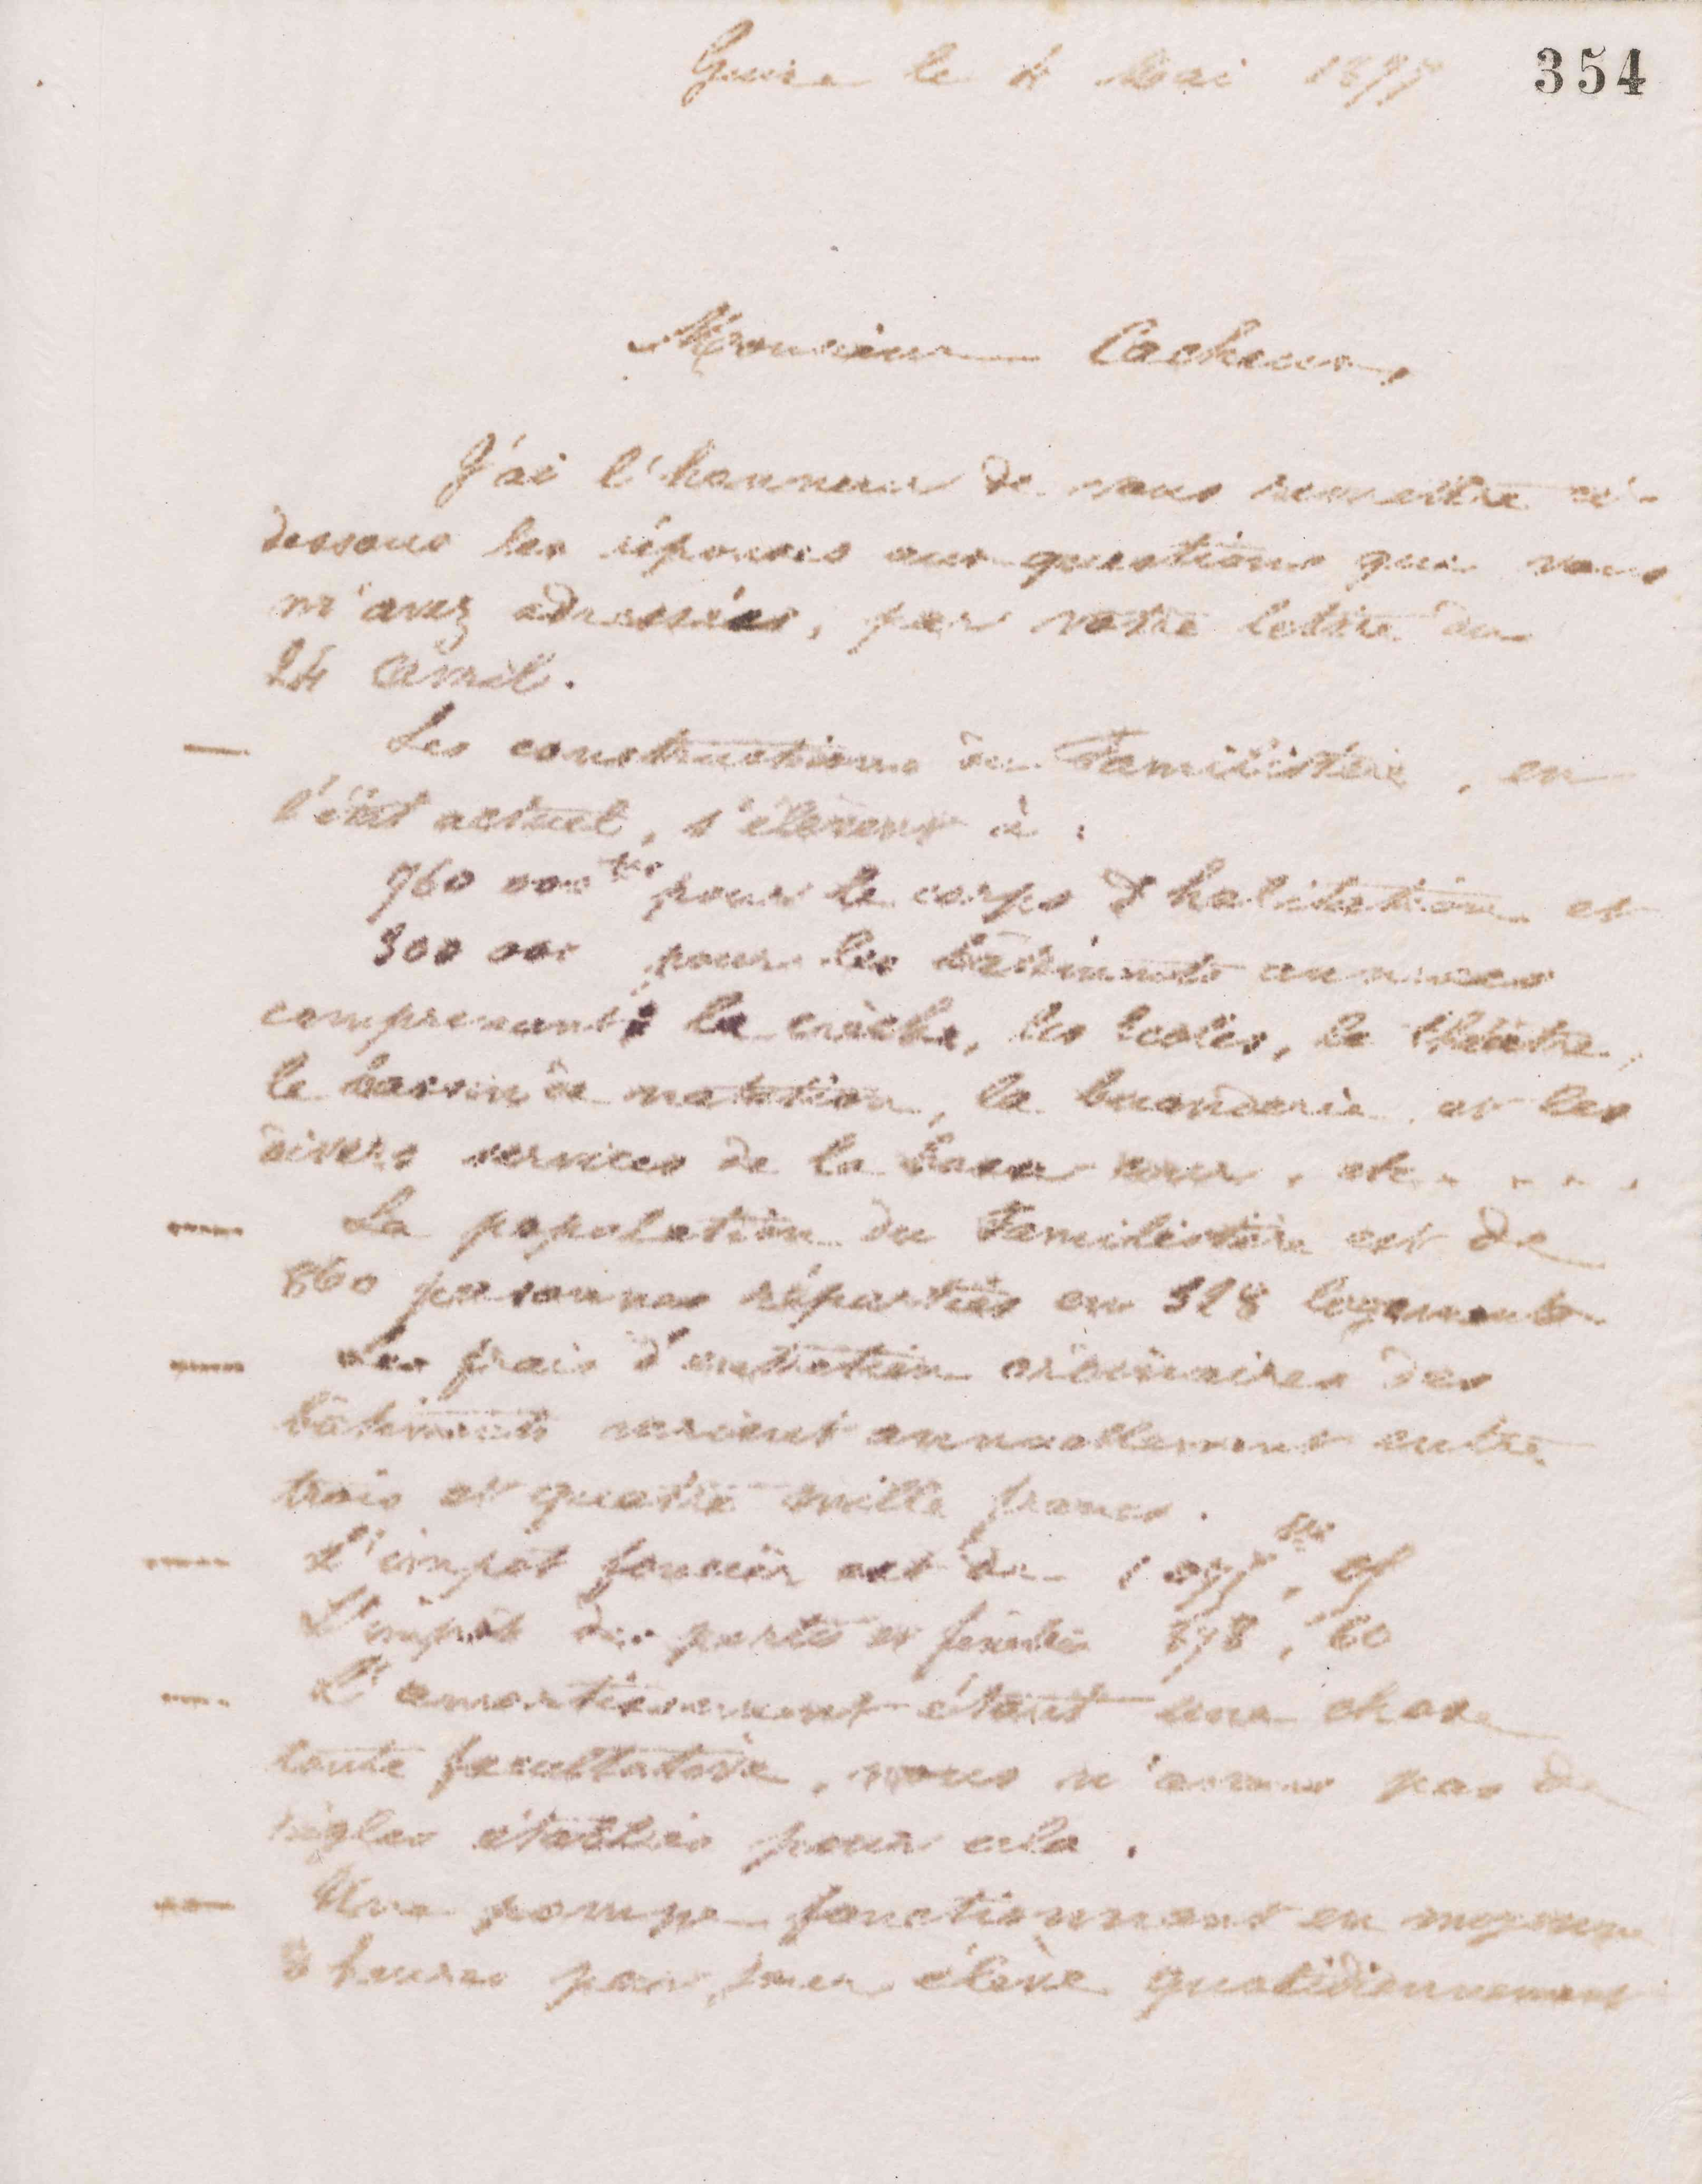 354
Guise le 4 Mai 1877
Monsieur Cacheux,
J'ai l'honneur de vous remettre ci-
dessous les réponses aux questions que vous
m'avez adressées, par votre lettre du
24 Avril.
— Les constructions du Familistère, en
l'état actuel, s'élèvent à :
960 000 frs pour le corps d'habitation et
300 000 pour les bâtiments annexes
comprenant : la crèche, les écoles, le théâtre,
le bassin de natation, la buanderie et les
divers services de la basse cour, etc. . . . .
— La population du Familistère est de
860 personnes réparties en 328 logements
— Les frais d'entretien ordinaires des
bâtiments varient annuellement entre
trois et quatre mille francs.
— L'impôt foncier est de
L'impôt des portes et fenêtres 878, 60
— L'amortissement étant une chose
toute facultative, nous n'avons pas de
règles établies pour cela.
— Une pompe fonctionnant en moyenne
heures par jour élève quotidiennement